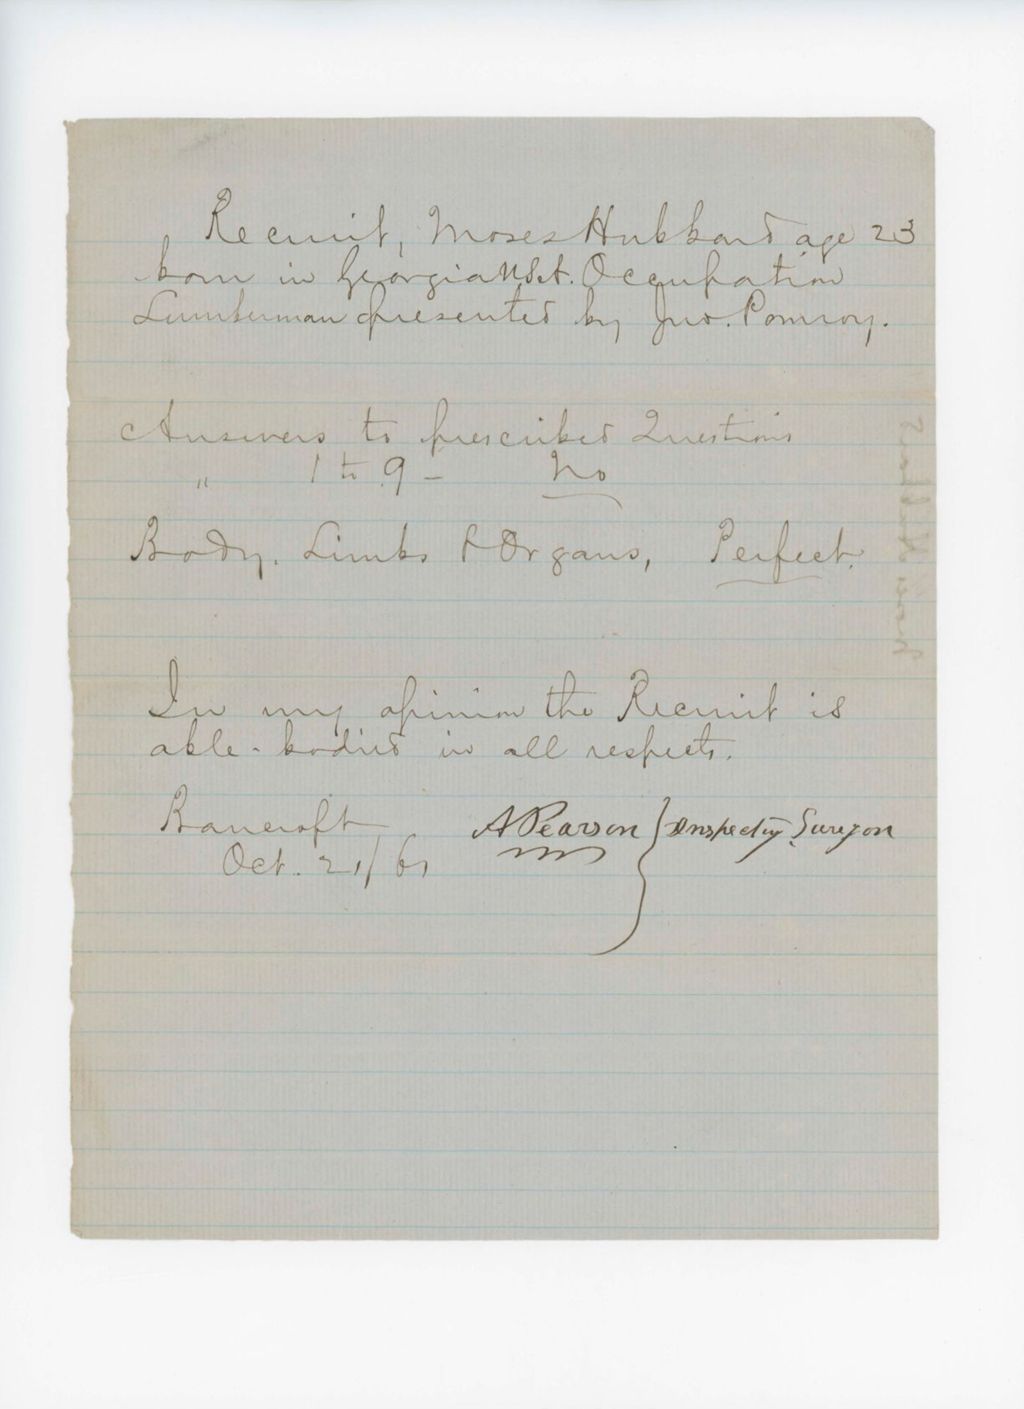 Recruit, Moses Hubbard age 23
born in Georgia Vt. Occupation
Lumberman presented by Jno. Pomroy.
Answers to prescribed Questions
" 1 to 9 - No
Body, Limbs & Organs, Perfect.
In my opinion the Recruit is
able-bodied in all respects.
Bancroft A Pearson } Inspecting Surgeon
Oct. 21/61